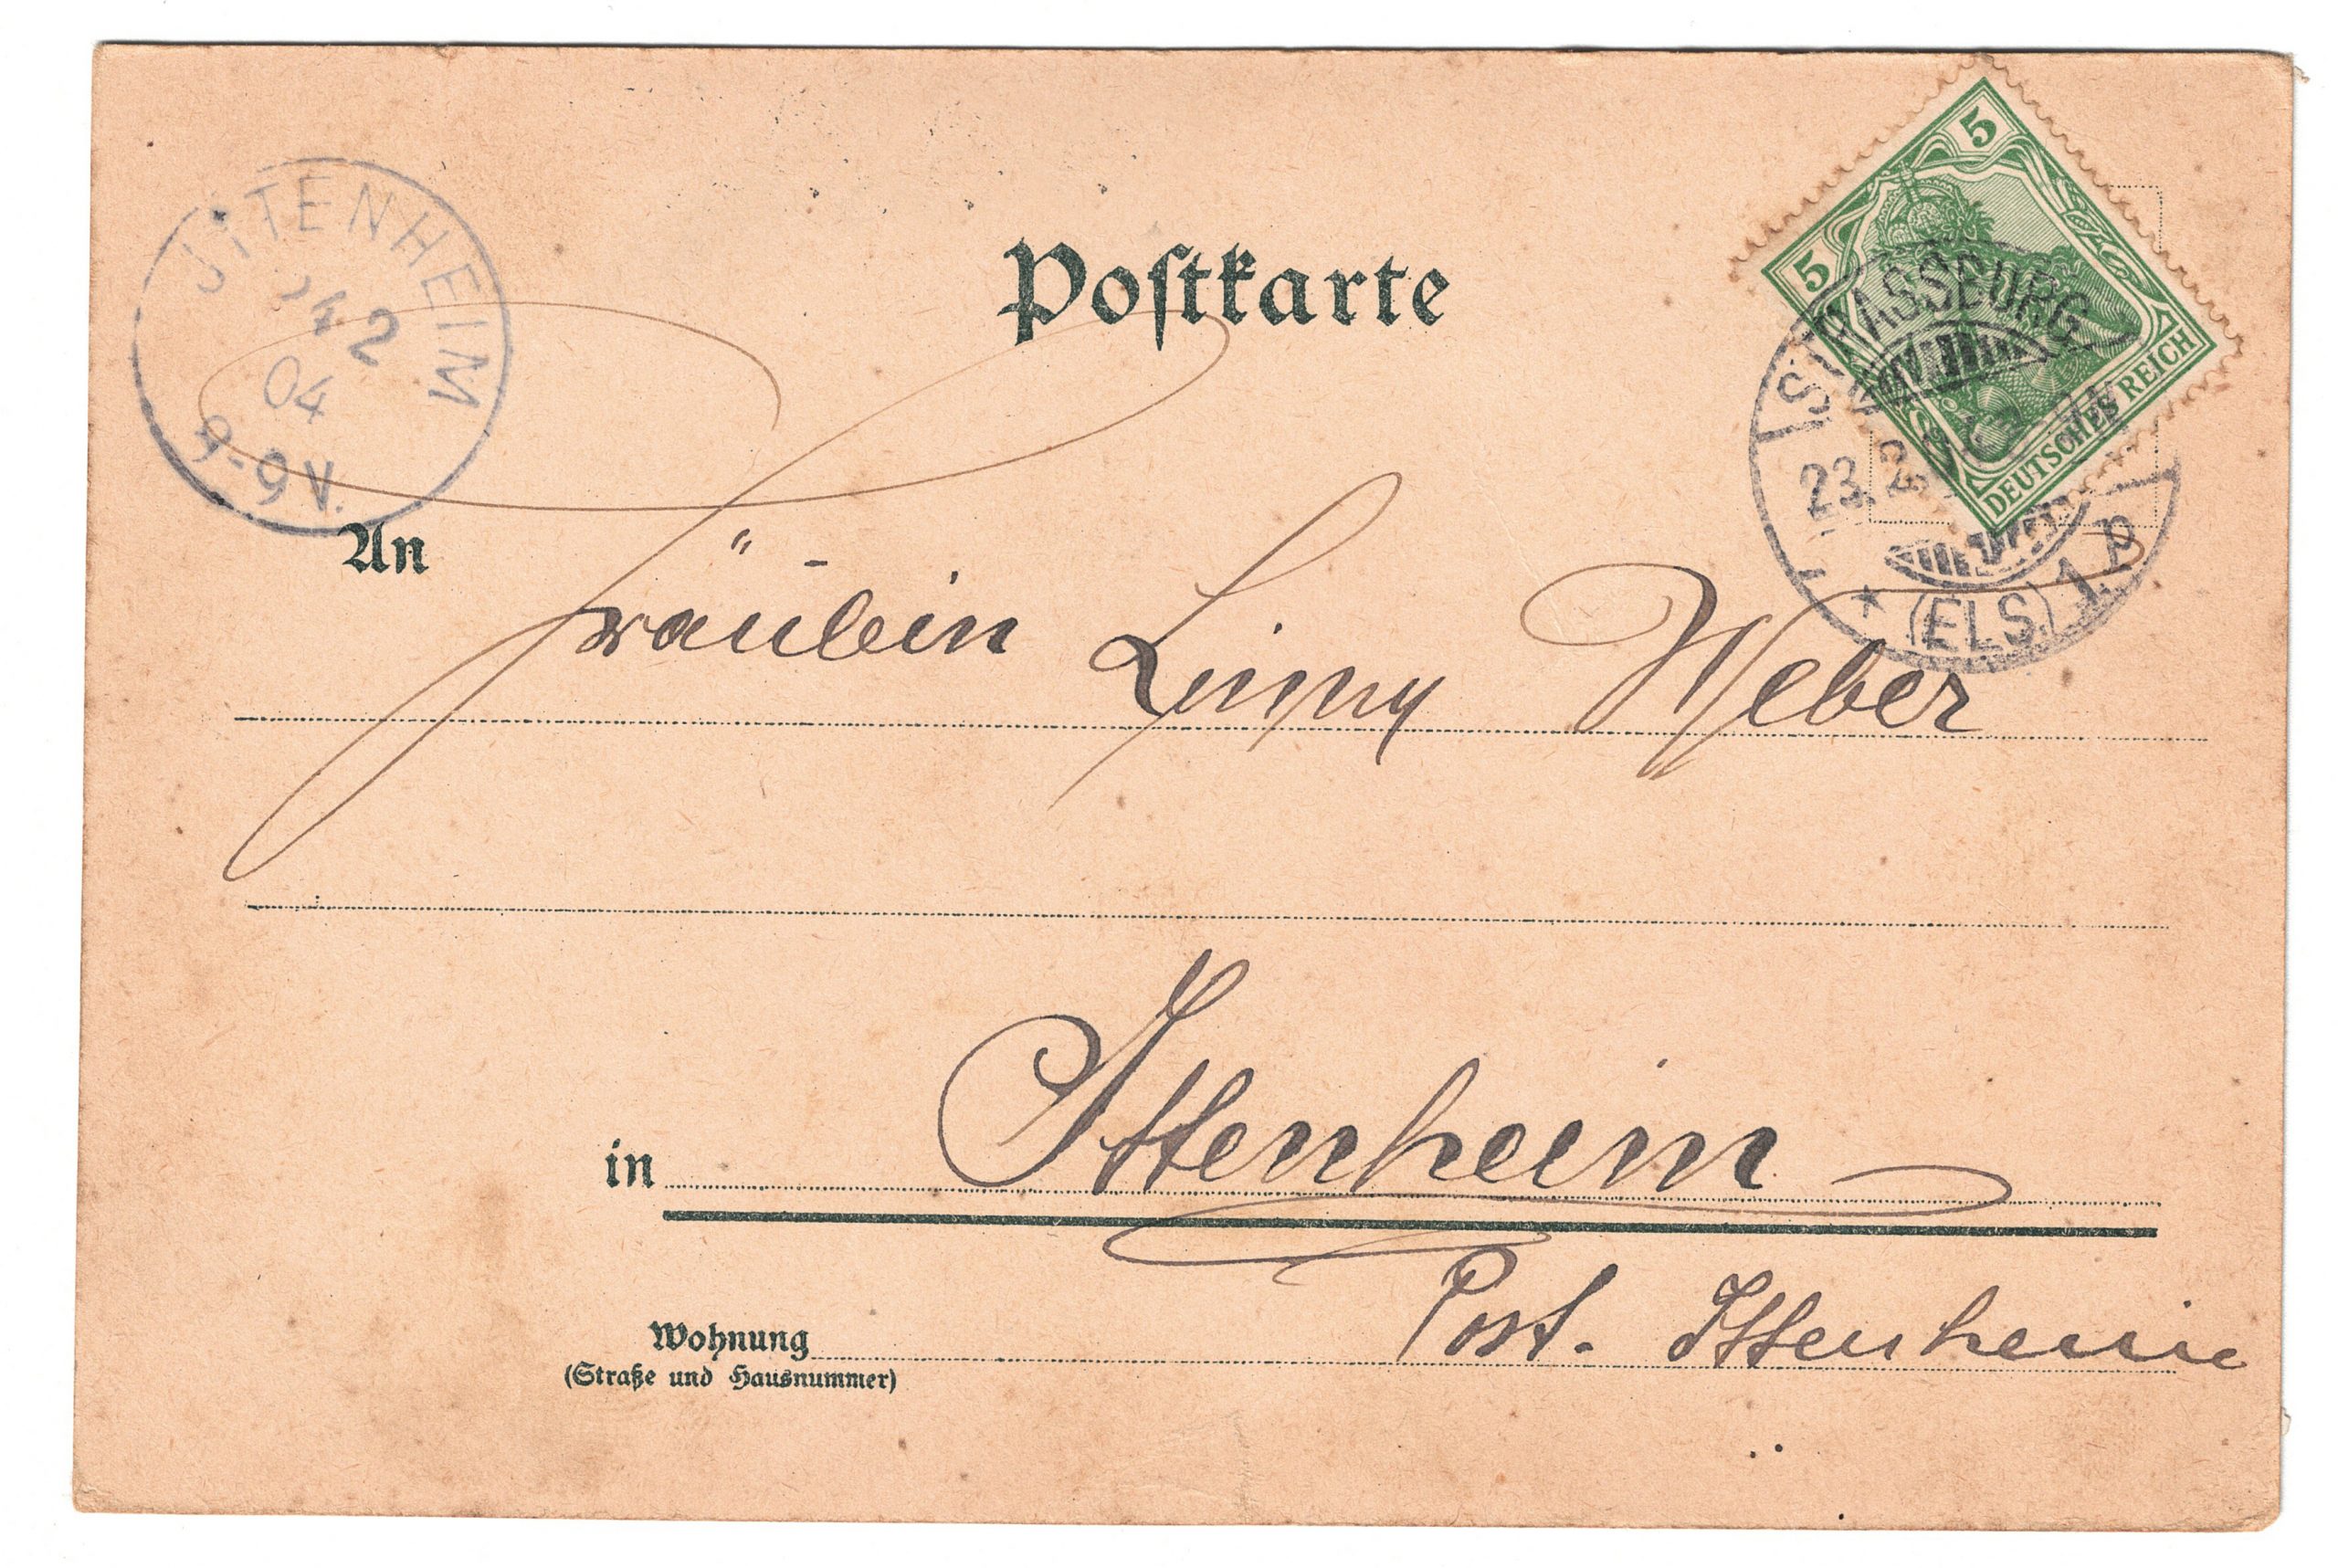 JTTENHEIM
2
04
8-9V.
Postkarte
5
5
DEUTSCHES REICH
STRASSBURG
23.2.
* (ELS) 1. p
An
Fräulein Weber
in Ittenheim
Post. Ittenheim
Wohnung
(Straße und Hausnummer)